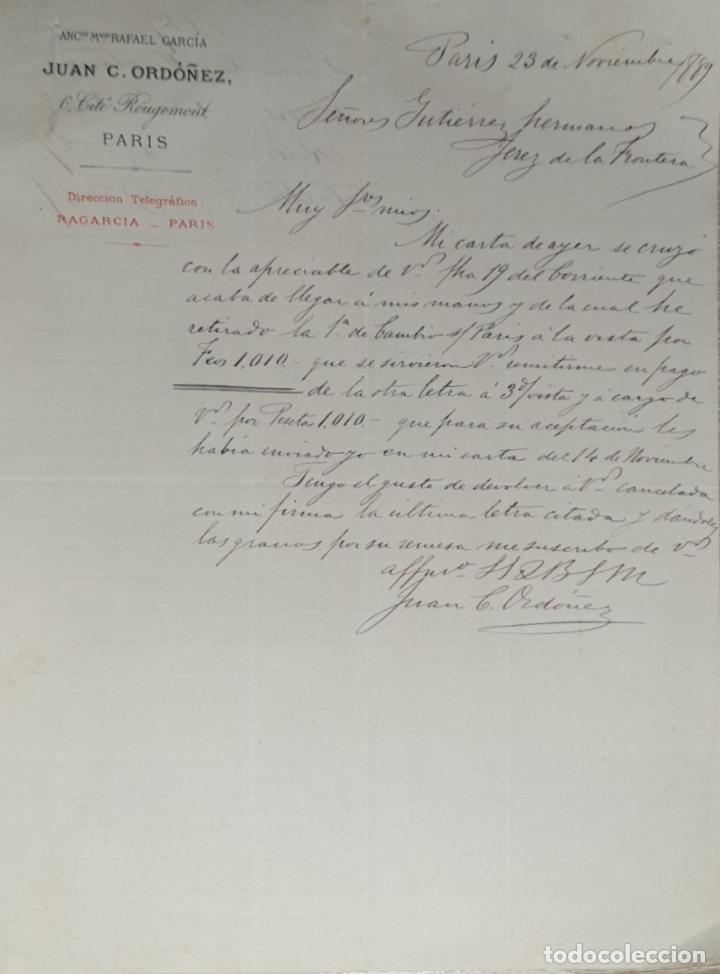 ANCNE MSON RAFAEL GARCÍA
JUAN C. ORDÓÑEZ,
6, Cité Rougemont,
PARIS
Direccion Telegráfica:
RAGARCIA _ PARIS
Paris 23 de Noviembre 1889
Señores Gutiérrez hermanos
Jerez de la Frontera
Muy Sres mios:
Mi carta de ayer se cruzó
con la apreciable de Vds fha 19 del Corriente que
acaba de llegar á mis manos y de la cual he
retirado la 1a de Cambio s/ Paris á la vista por
Fcos 1,010.- que se sirvieron Vds remitirme en pago
de la otra letra á 3 d/ vista y á cargo de
Vds por Pesetas 1,010.- que para su aceptación les
había enviado yo en mi carta del 14 de Noviembre
Tengo el gusto de devolver á Vds cancelada
con mi firma la última letra citada y dándoles
las gracias por su remesa me suscribo de Vds
affmo SSQBSM
Juan C. Ordóñez
todocoleccion